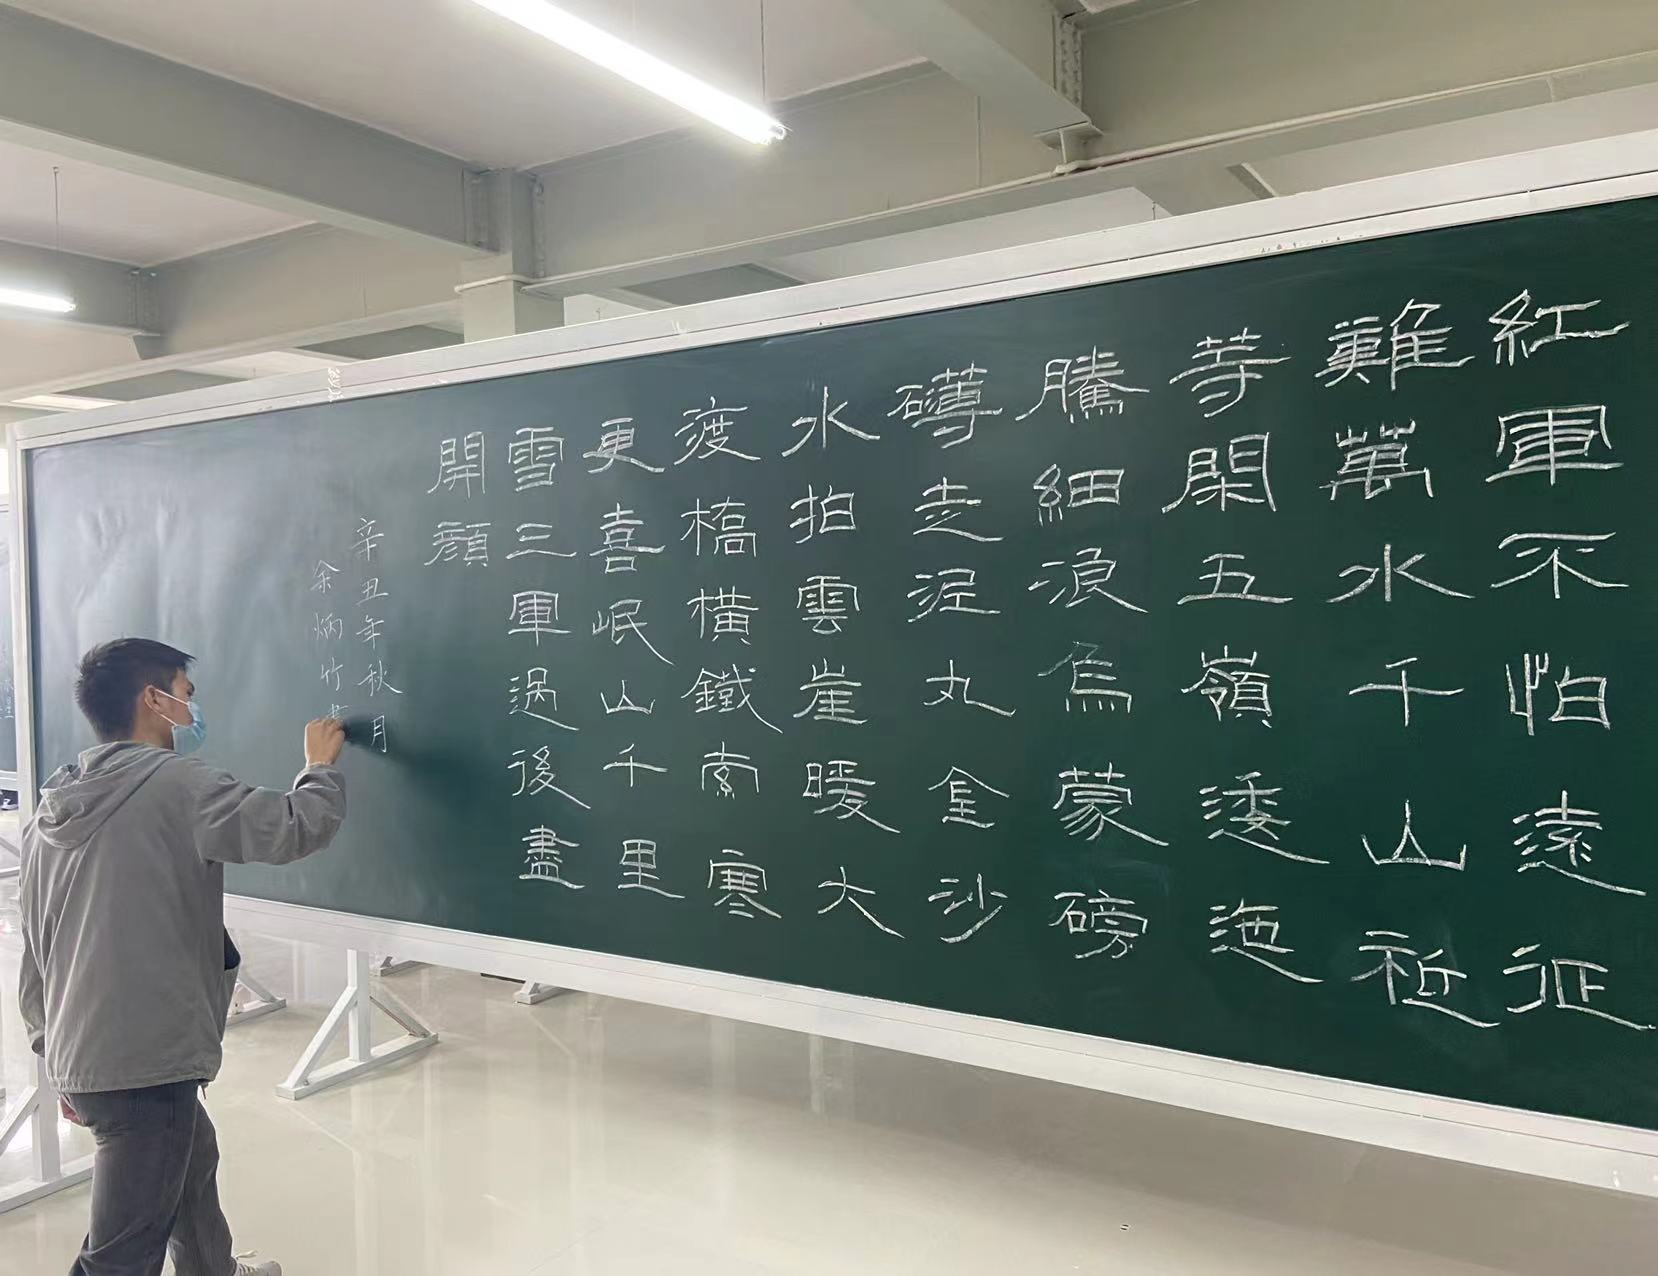 紅軍不怕遠征
難萬水千山祇
等閑五嶺逶迤
騰細浪烏蒙磅
礴走泥丸金沙
水拍雲崖暖大
渡橋橫鐵索寒
更喜岷山千里
雪三軍過後盡
開顏
辛丑年秋月
余炳竹